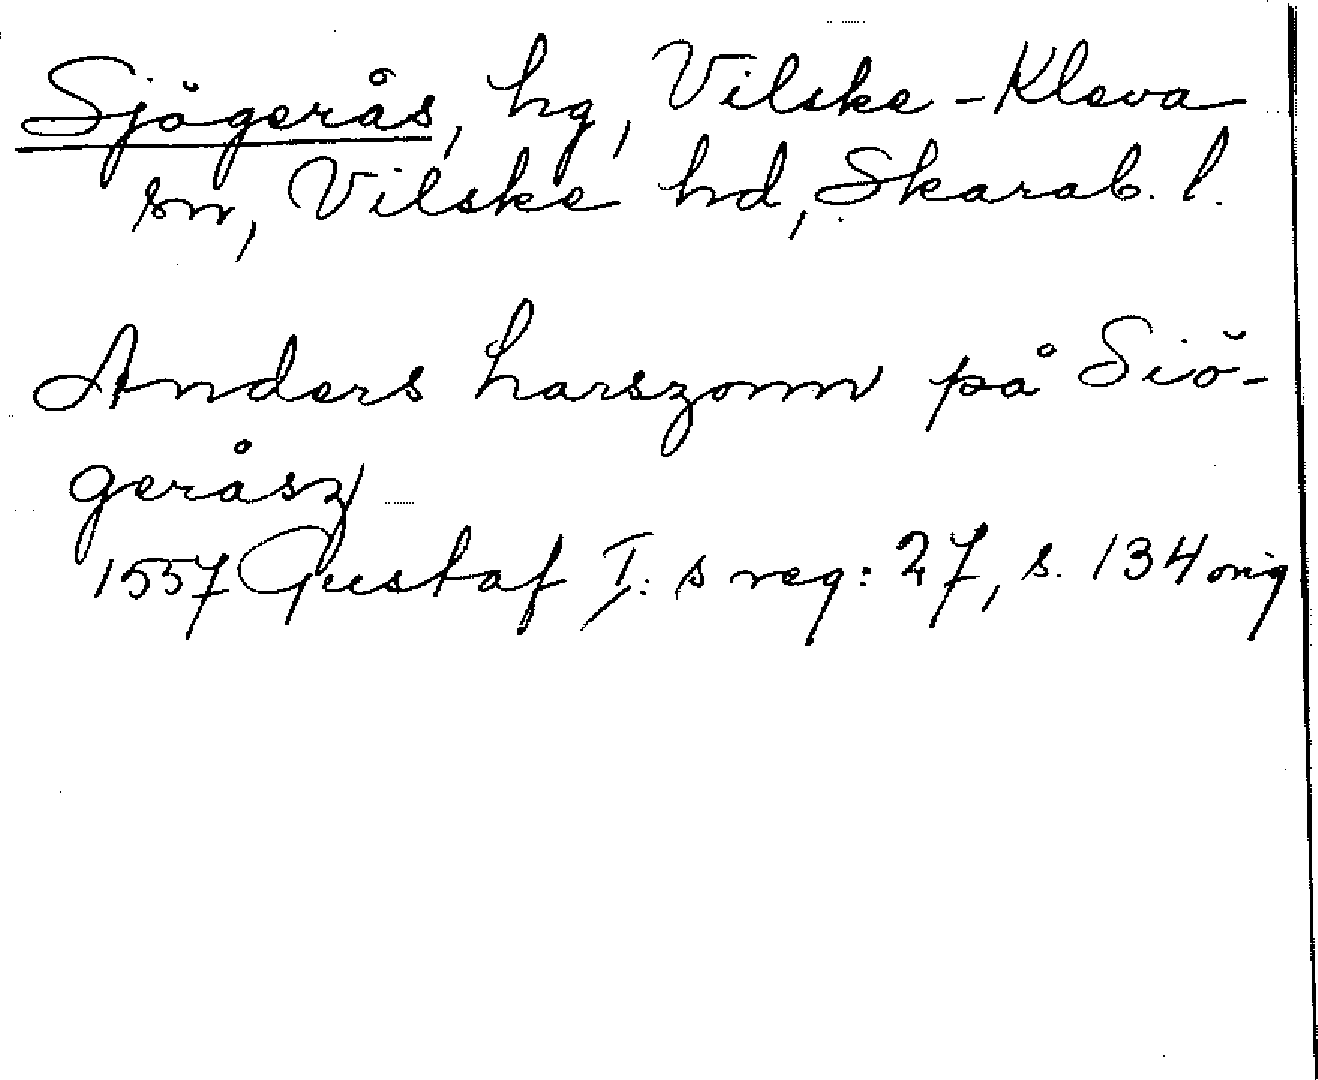 Sjögerås, hg, Vilske-Kleva
sn, Vilske hd, Skarab. l.
Anders harszonn på Siö-
geråsz
1557 Gustaf I: s reg: 27, s. 134 orig